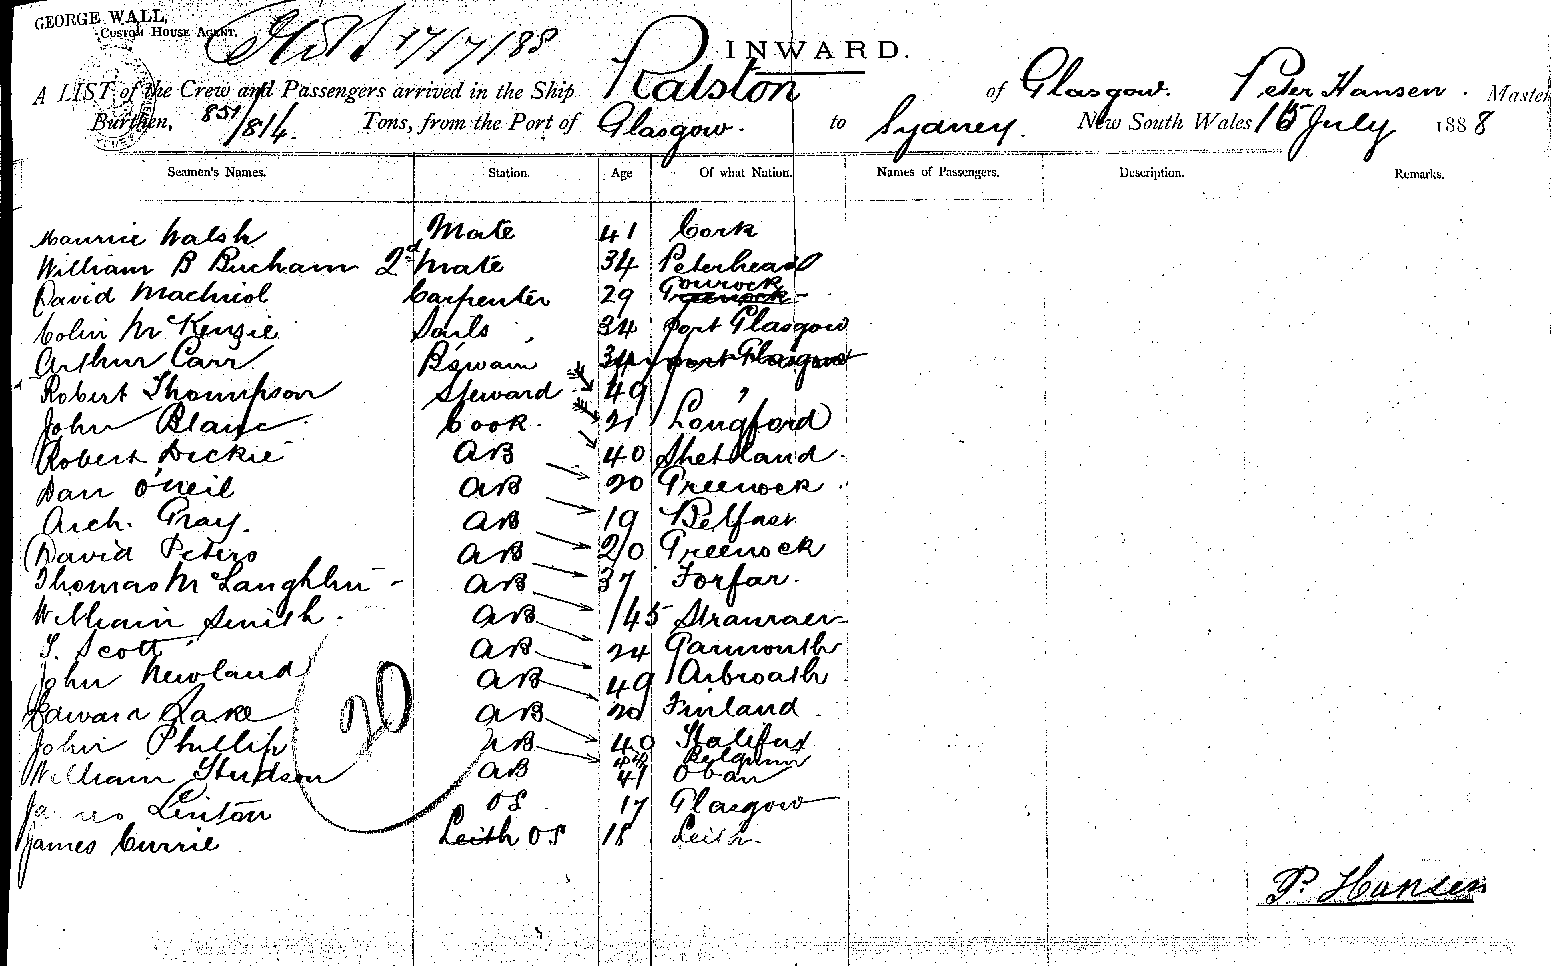 GEORGE WALL,
Custom House Agent.
17/7/88
INWARD.
A LIST of the Crew and Passengers arrived in the Ship Ralston of Glasgow. Peter Hansen. Master
Burthen, 851/814. Tons, from the Port of Glasgow. to Sydney. New South Wales 15 July 1888
Seamen's Names. Station. Age Of what Nation. Names of Passengers. Description. Remarks.
Maurice Walsh Mate 41 Cork
William B Bucham 2d Mate 34 Peterhead
David Macnicol Carpenter 29 Gourock Greenock
Colin McKenzie Sails 34 Port Glasgow
Arthur Carr B'swain 34 Port Glasgow
Robert Thompson Steward 49 "
John Blanc Cook. 21 Longford
Robert Dickie AB 40 Shetland.
Dan O'Neil AB 20 Greenock.
Arch. Gray. AB 19 Belfast
David Peters AB 20 Greenock
Thomas McLaughlin AB 37 Forfar.
William Smith. AB 45 Stranraer
T. Scott AB 24 Garmouth
John Newland AB 49 Arbroath
Edward Lake AB 20 Finland
John Phillip AB 40 Halifax
Belgium
William Hudson AB 41 Oban
James Linton OS 17 Glasgow
James Currie Leith OS 18 Leith.
20
P. Hansen